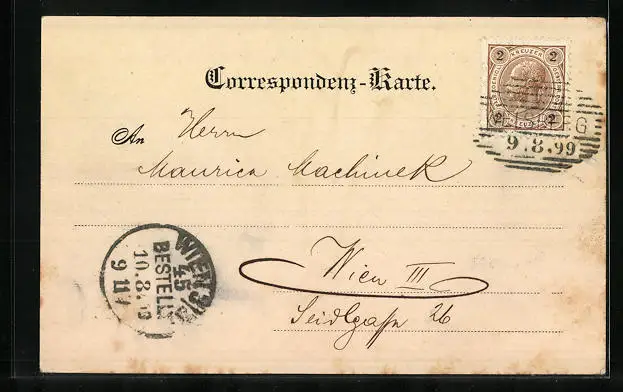 Correspondenz-Karte.
2 KREUZER 2
2 2
G
9.8.99
An Herrn
Maurice Machinek
Wien III
Seidlgasse 26
WIEN 3/3
45
BESTELLT
10.8.99